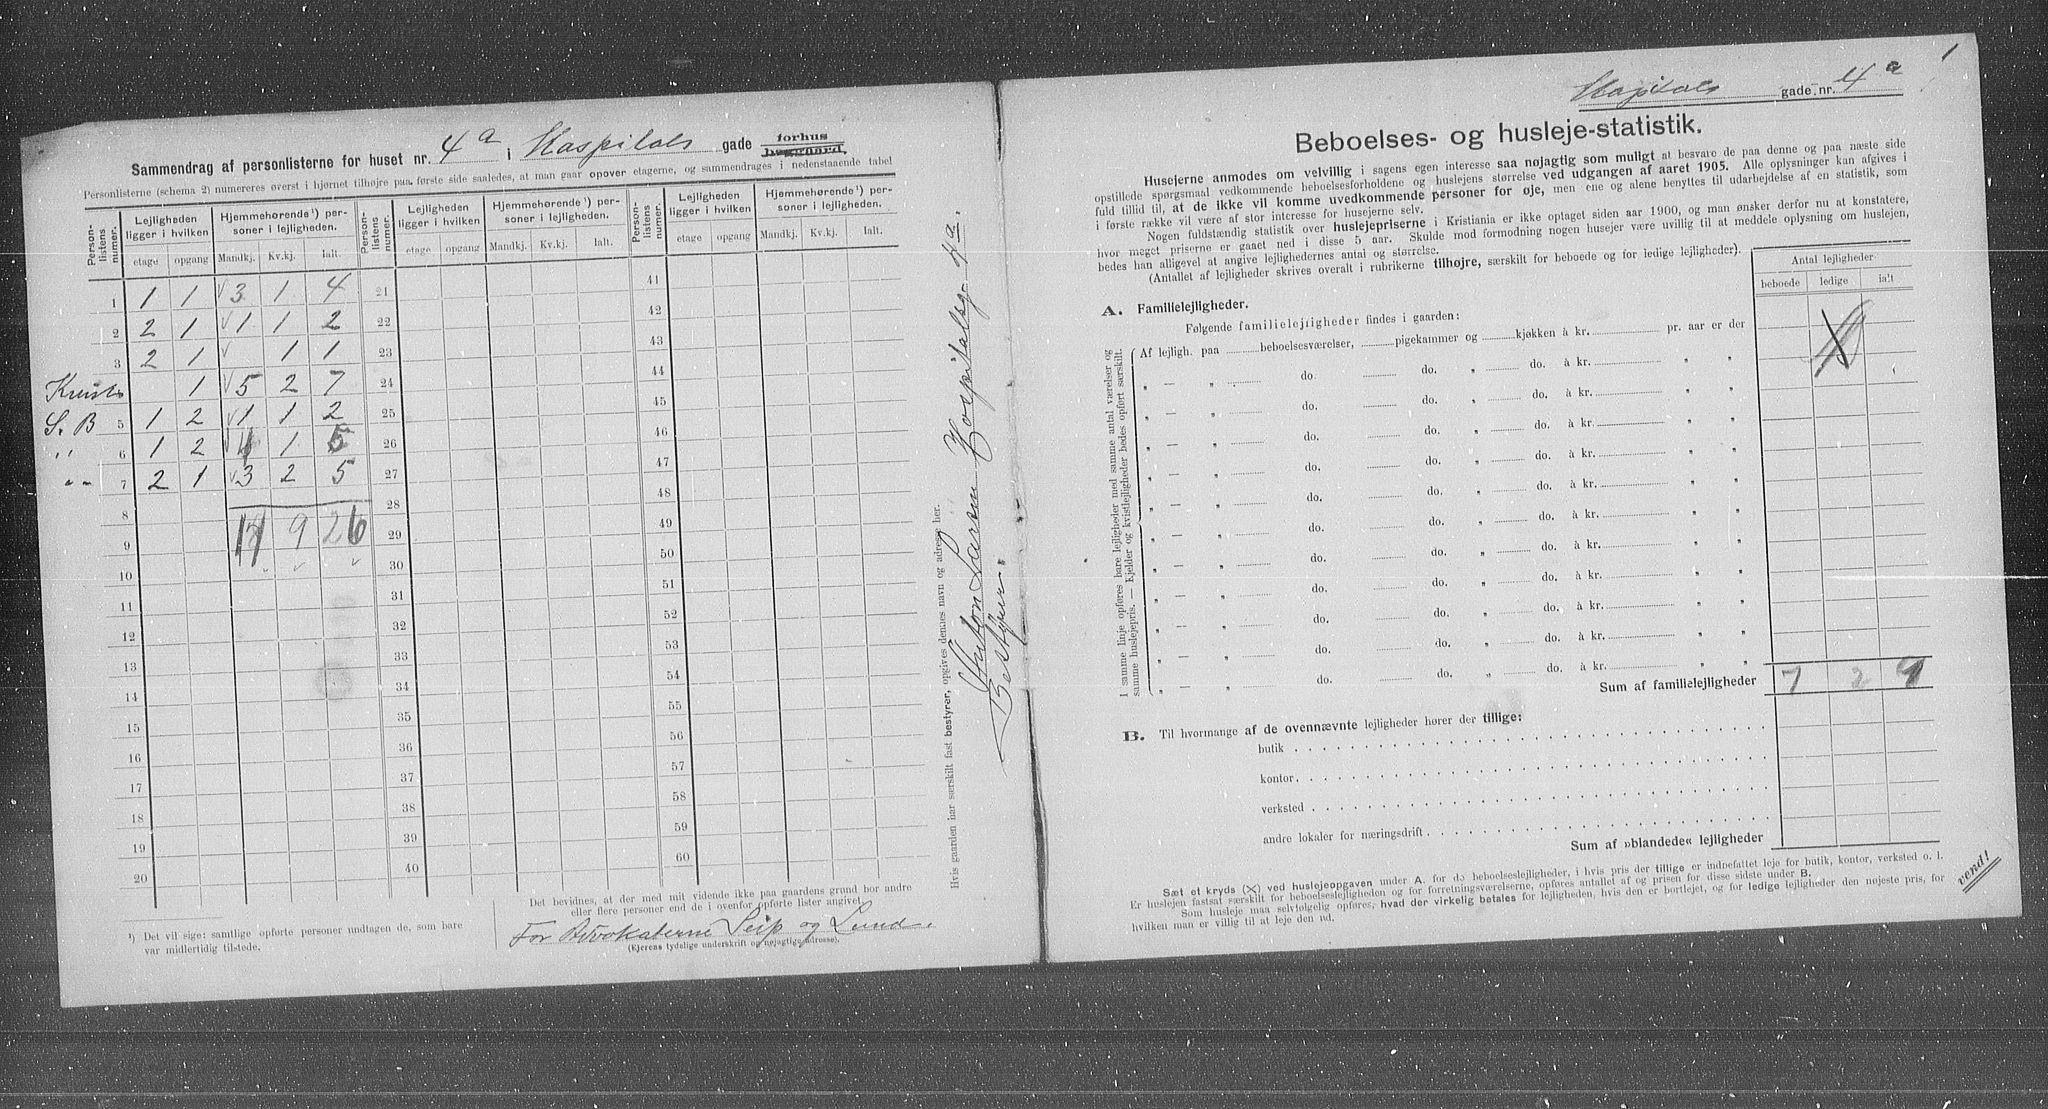 Sammendrag af personlisterne for huset nr. 4 a i Hospitals gade forhus baggaard.
Personlisterne (schema 2) numereres øverst i hjørnet tilhøjre paa første side saaledes, at man gaar opover etagerne, og sammendrages i nedenstaaende tabel
Person-listens numer. Lejligheden ligger i hvilken Hjemmehørende¹) personer i lejligheden. Person-listens numer. Lejligheden ligger i hvilken Hjemmehørende¹) personer i lejligheden. Person-listens numer. Lejligheden ligger i hvilken Hjemmehørende¹) personer i lejligheden.
etage opgang Mandkj. Kv.kj. Ialt. etage opgang Mandkj. Kv.kj. Ialt. etage opgang Mandkj. Kv.kj. Ialt.
1 1 1 3 1 4 21 41
2 2 1 1 1 2 22 42
3 2 1 1 1 23 43
1 5 2 7 24 44
S. B 5 1 2 1 1 2 25 45
" 6 1 2 4 1 5 26 46
" 7 2 1 3 2 5 27 47
8 28 48
9 17 9 26 29 49
10 30 50
11 31 51
12 32 52
13 33 53
14 34 54
15 35 55
16 36 56
17 37 57
18 38 58
19 39 59
20 40 60
¹) Det vil sige: samtlige opførte personer undtagen de, som bare
var midlertidig tilstede.
Det bevidnes, at der med mit vidende ikke paa gaardens grund bor andre
eller flere personer end de i ovenfor opførte lister angivet.
For Advokaterne Seip og Lund.
(Ejerens tydelige underskrift og nøjagtige adresse).
Hvis gaarden har særskilt fast bestyrer, opgives dennes navn og adresse her.
Anton Larsen Hospitalsg. 4a.
Bestyrer.
Hospitals gade nr. 4 a
1
Beboelses- og husleje-statistik.
Husejerne anmodes om velvillig i sagens egen interesse saa nøjagtig som muligt at besvare de paa denne og paa næste side
opstillede spørgsmaal vedkommende beboelsesforholdene og huslejens størrelse ved udgangen af aaret 1905. Alle oplysninger kan afgives i
fuld tillid til, at de ikke vil komme uvedkommende personer for øje, men ene og alene benyttes til udarbejdelse af en statistik, som
i første række vil være af stor interesse for husejerne selv.
Nogen fuldstændig statistik over huslejepriserne i Kristiania er ikke optaget siden aar 1900, og man ønsker derfor nu at konstatere,
hvor meget priserne er gaaet ned i disse 5 aar. Skulde mod formodning nogen husejer være uvillig til at meddele oplysning om huslejen,
bedes han alligevel at angive lejlighedernes antal og størrelse.
(Antallet af lejligheder skrives overalt i rubrikerne tilhøjre, særskilt for beboede og for ledige lejligheder).
Antal lejligheder
beboede ledige ialt
A. Familielejligheder.
Følgende familielejligheder findes i gaarden:
I samme linje opføres bare lejligheder med samme antal værelser og
samme huslejepris. — Kjelder og kvistlejligheder bedes opført særskilt.
Af lejligh. paa beboelsesværelser, pigekammer og kjøkken à kr. pr. aar er der
" — " do. do. " do. à kr. " "
" — " do. do. " do. à kr. " "
" — " do. do. " do. à kr. " "
" — " do. do. " do. à kr. " "
" — " do. do. " do. à kr. " "
" — " do. do. " do. à kr. " "
" — " do. do. " do. à kr. " "
" — " do. do. " do. à kr. " "
" — " do. do. " do. à kr. " "
" — " do. do. " do. à kr. " "
" — " do. do. " do. à kr. " "
Sum af familielejligheder 7 2 9
B. Til hvormange af de ovennævnte lejligheder hører der tillige:
butik
kontor
verksted
andre lokaler for næringsdrift
Sum af »blandede« lejligheder
Sæt et kryds (X) ved huslejeopgaven under A. for de beboelseslejligheder, i hvis pris der tillige er indbefattet leje for butik, kontor, verksted o. l.
Er huslejen fastsat særskilt for beboelseslejligheden og for forretningsværelserne, opføres antallet af og prisen for disse sidste under B.
Som husleje maa selvfølgelig opføres, hvad der virkelig betales for lejligheden, hvis den er bortlejet, og for ledige lejligheder den nøjeste pris, for
hvilken man er villig til at leje den ud.
vend!